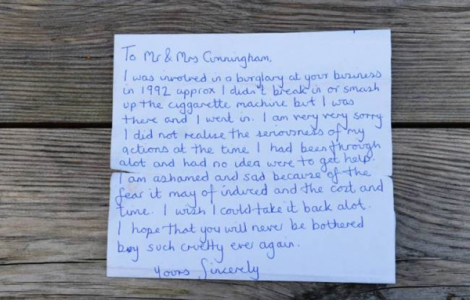 To Mr & Mrs Cunningham,
I was involved in a burglary at your business
in 1992 approx I didn't break in or smash
up the ciggarette machine but I was
there and I went in. I am very very sorry
I did not realise the seriousness of my
actions at the time I had been through
alot and had no idea were to get help.
I am ashamed and sad because of the
fear it may of induced and the cost and
time. I wish I could take it back alot.
I hope that you will never be bothered
by such cruelty ever again.
Yours Sincerely